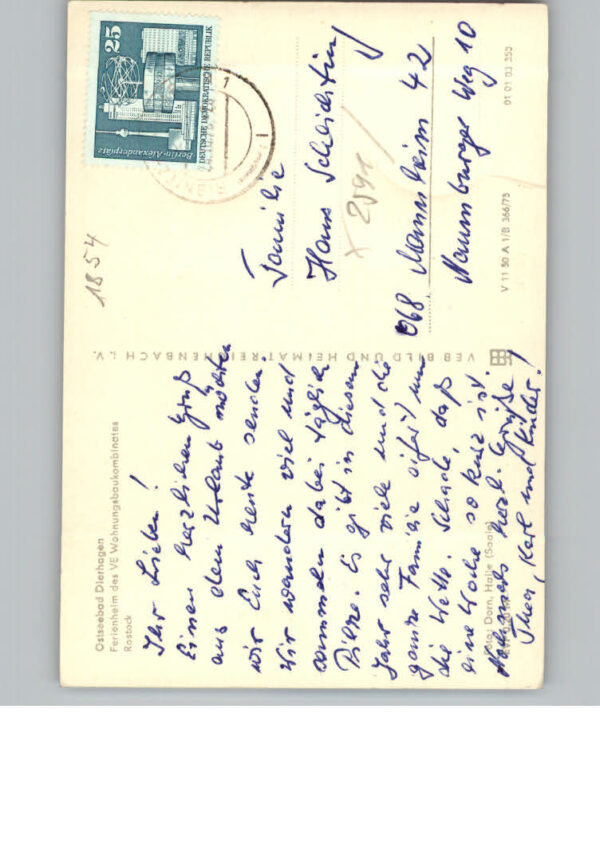 Ostseebad Dierhagen
Ferienheim des VE Wohnungsbaukombinates
Rostock
Ihr Lieben!
Einen herzlichen Gruß
aus dem Urlaub möchten
wir Euch heute senden.
Wir wandern viel und
sammeln dabei täglich
Pilze. Es gibt in diesem
Jahr sehr viele und die
ganze Familie eifert um
die Wette. Schade, daß
eine Woche so kurz ist.
Nochmals herzl. Grüße
Thea, Karl und Kinder!
Foto: Dorn, Halle (Saale)
VEB BILD UND HEIMAT REICHENBACH i. V.
1854
25
DEUTSCHE DEMOKRATISCHE REPUBLIK
Berlin-Alexanderplatz
Familie
Hans
X 2591
068 Mannheim 42
Naumburger Weg 10
V 11 50 A 1/B 366/75
01 01 03 353